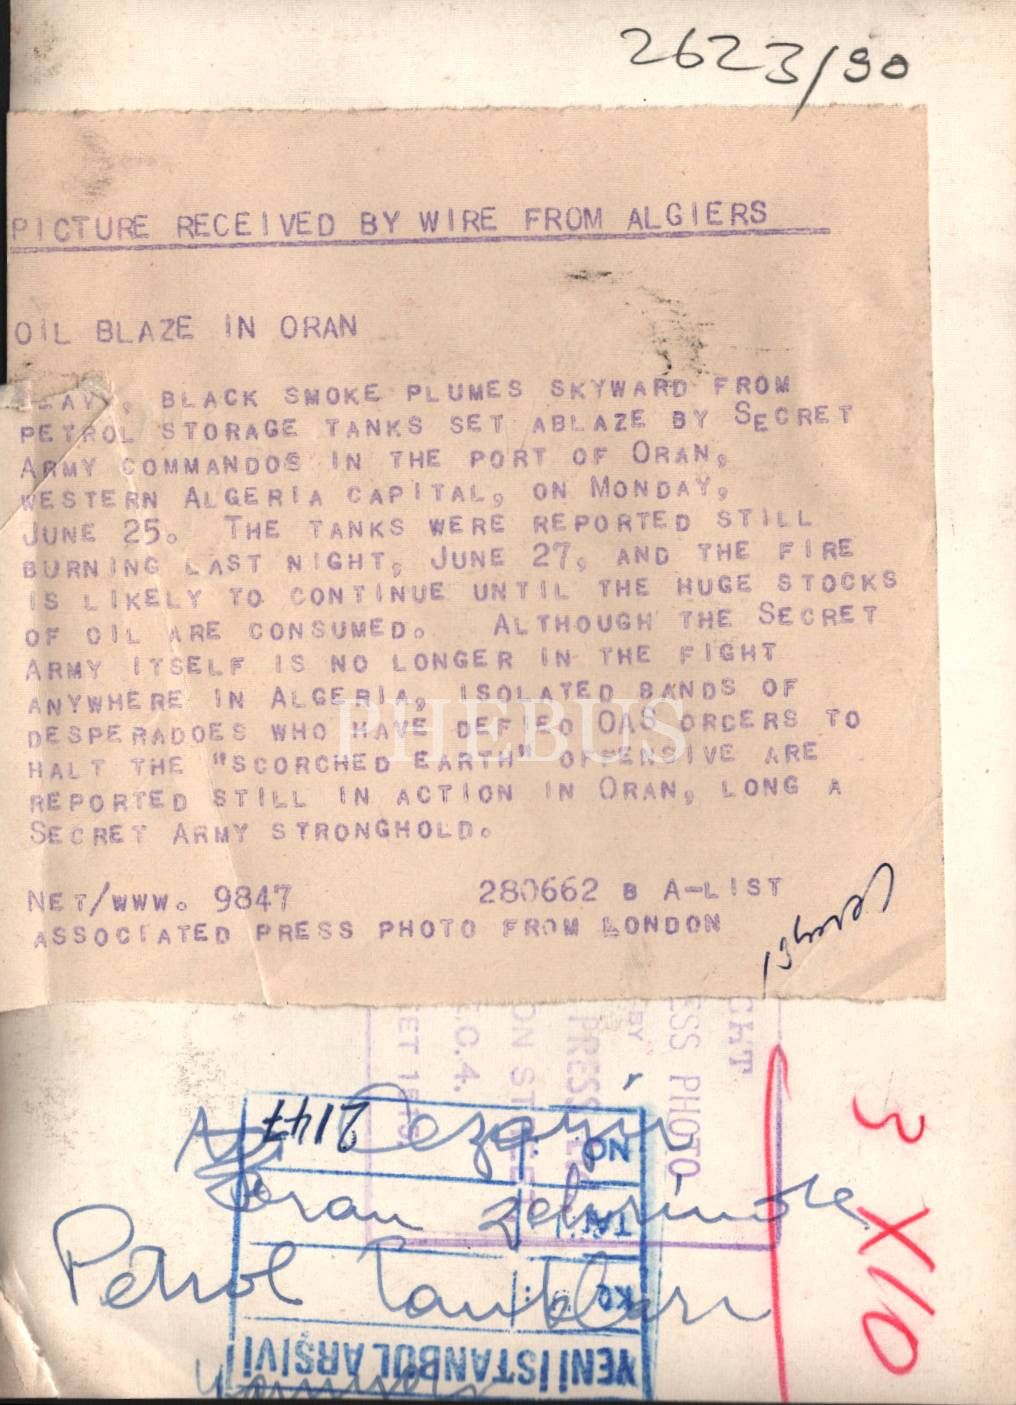 2623/90
PICTURE RECEIVED BY WIRE FROM ALGIERS
OIL BLAZE IN ORAN
BLACK SMOKE PLUMES SKYWARD FROM
PETROL STORAGE TANKS SET ABLAZE BY SECRET
ARMY COMMANDOS IN THE PORT OF ORAN,
WESTERN ALGERIA CAPITAL, ON MONDAY,
JUNE 25. THE TANKS WERE REPORTED STILL
BURNING LAST NIGHT, JUNE 27, AND THE FIRE
IS LIKELY TO CONTINUE UNTIL THE HUGE STOCKS
OF OIL ARE CONSUMED. ALTHOUGH THE SECRET
ARMY ITSELF IS NO LONGER IN THE FIGHT
ANYWHERE IN ALGERIA, ISOLATED BANDS OF
DESPERADOES WHO HAVE DEFIED OAS ORDERS TO
HALT THE "SCORCHED EARTH" OFFENSIVE ARE
REPORTED STILL IN ACTION IN ORAN, LONG A
SECRET ARMY STRONGHOLD.
NET/WWW. 9847 280662 B A-LIST
ASSOCIATED PRESS PHOTO FROM LONDON
PHEBUS
ESS PHOTO
BY
PRESS
ON ST
E.C.4.
2147
NO
Cezayir
Oran şehrinde
Petrol Tankları
YENİ İSTANBUL ARŞİVİ
3 X 10